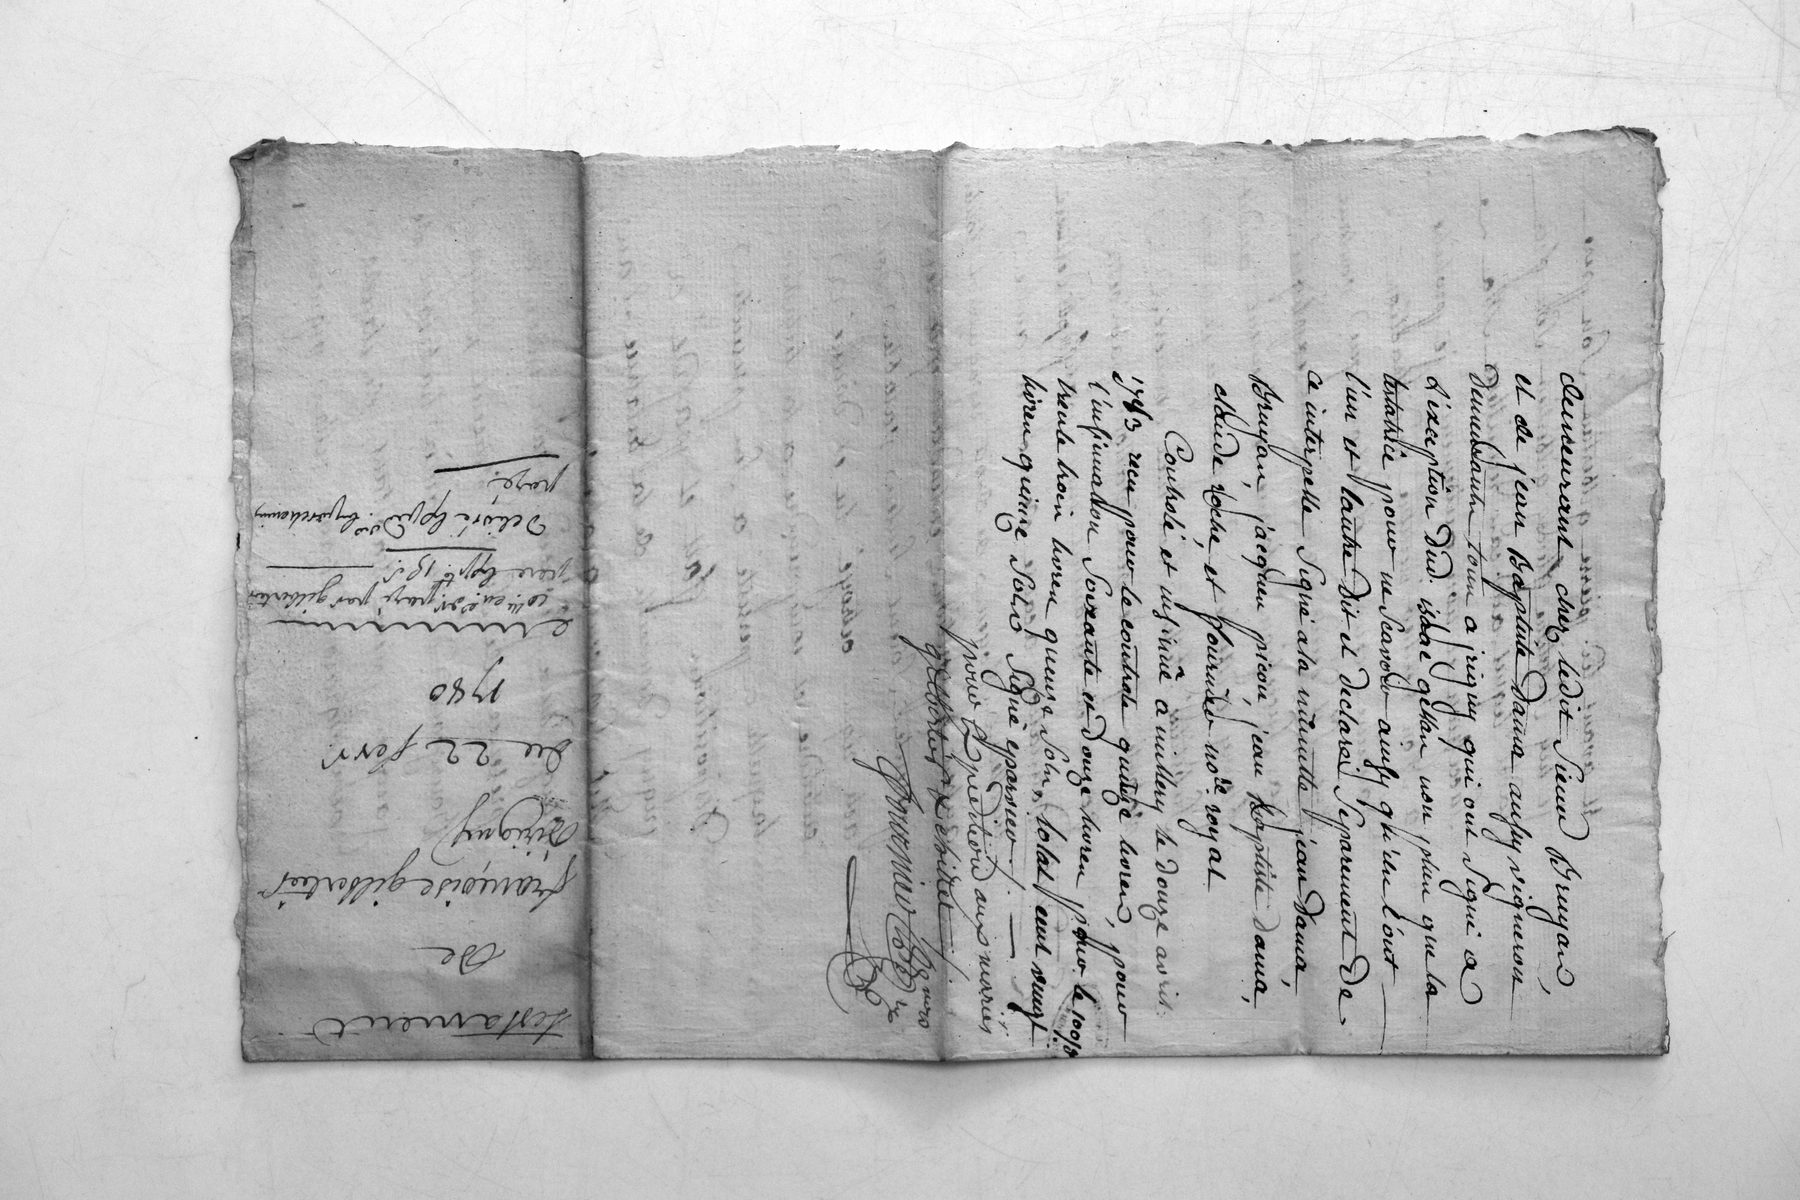 demeurant chez ledit Sieur Bruyan,
et de jean Baptiste dama aussy vigneron
demeurants tous a jrigny qui ont Signé a
l'exception dud. isaac gettan non plus que la
testatrice pour ne Scavoir ainsy qu'ils l'ont
l'un et l'autre dit et declaré Separement de
ce interpellé Signé a la minutte jean dama,
Bruyan, jacques picou, jean Baptiste dama,
claude roche, et fournier no.re royal
Controlé et insinué a millery le douze avril
1783 reçu pour le controle quinze livres, pour
l'insinuation Soixante et douze livres pour le 100.e d.
trente trois livres queuse Sols, total cent vingt
livres quinze Sols Signé eparvier
pour Expedition aux mariés
gilbertier
fournier no.re
testament
de
françoise gilbertier
d'jrigny
du 22 fevr.
1780
payé par gilbertier
payé.